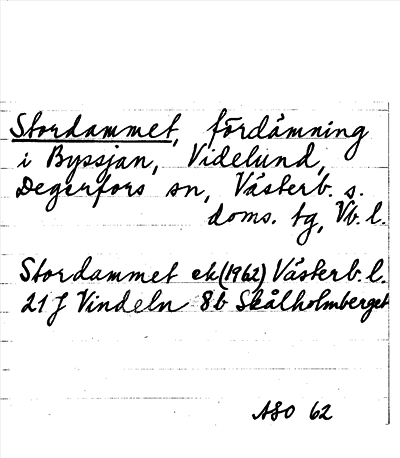 Stordammet, fördämning
i Byssjan, Videlund,
Degerfors sn, Västerb. s.
doms. tg, Vb. l.
Stordammet ek (1962) Västerb. l.
21 J Vindeln 8b Skålholmberget
ASO 62